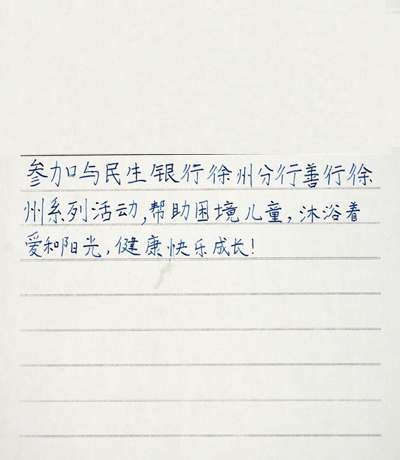 参加与民生银行徐州分行善行徐
州系列活动,帮助困境儿童,沐浴着
爱和阳光,健康快乐成长!